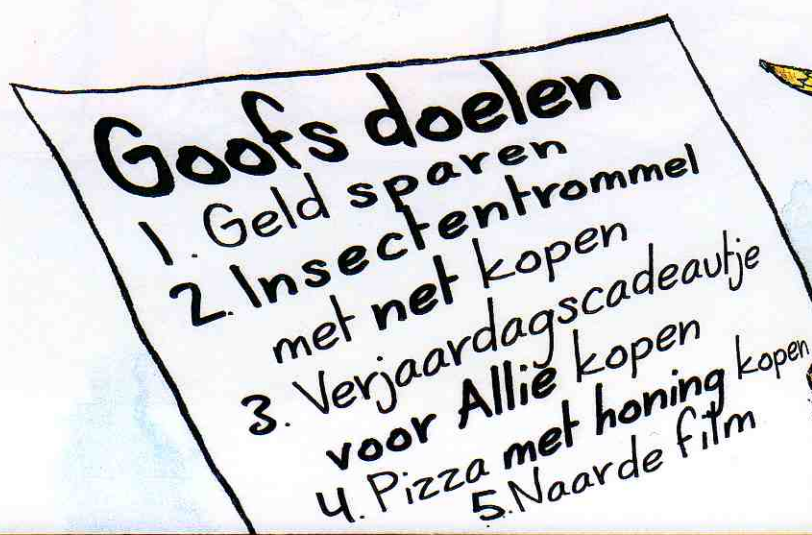 Goofs doelen
1. Geld sparen
2. Insectentrommel
met net kopen
3. Verjaardagscadeautje
voor Allie kopen
4. Pizza met honing kopen
5. Naar de film